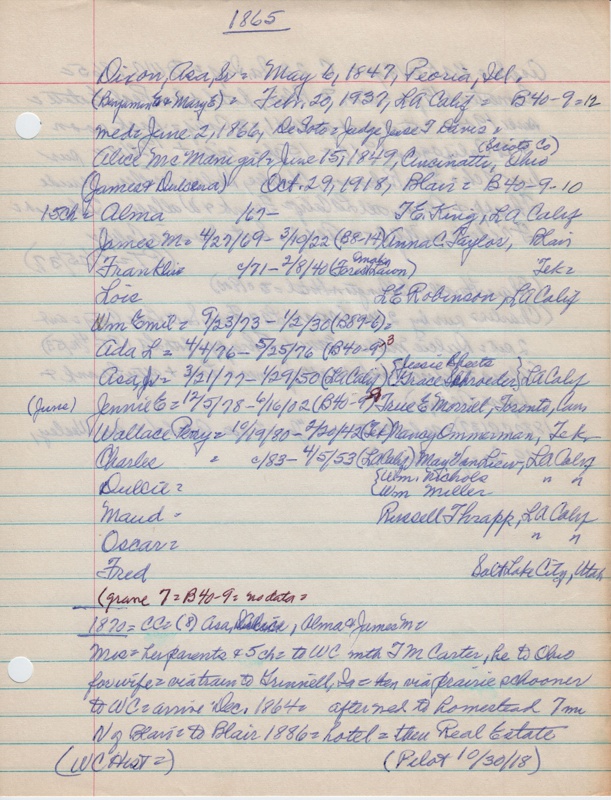 1865
Dixon, Asa, Sr = May 6, 1847, Peoria, Ill,
(Benjamin E & Mary E) = Feb. 20, 1937, LA Calif = B40-9=12
med = June 2, 1866, DeSoto = Judge Jesse T Davis =
(Scioto Co)
Alice McManigil = June 15, 1849, Cincinatti, Ohio
(James & Dulcena) Oct. 29, 1918, Blair = B40-9-10
15ch = Alma /67- T.E. King, LA Calif
James M = 4/27/69 - 3/19/22 (B8-14) Anna C. Taylor, Blair
Franklin c/71 - 2/8/40 (Omaha Forest Lawn) Tek =
Lois L E Robinson, LA Calif
Wm Emil = 9/23/73 - 1/2/30 (B89-6) =
Ada L = 4/4/76 - 5/25/76 (B40-9) 3
Asa Jr = 3/21/77 - 1/29/50 (LA Calif) {Jessie Grace Schroeder} LA Calif
(June) Jennie E = 12/5/78 - 6/16/02 (B40-9) True E Morrill, Toronto, Can
Wallace Perry = 10/19/80 - 2/20/42 (Tek) Nancy Ommerman, Tek
Charles = c/83 - 4/5/53 (LA Calif) May Van Liew, LA Calif
Dulcie = {Wm. Nichols " "
{Wm Miller
Maud = Russell Thrapp, LA Calif
Oscar = " "
Fred Salt Lake City, Utah
(grave 7 = B40-9 = no data =
1870 = CC = (8) Asa, Alice, Alma & James M =
Mrs = her parents & 5 ch = to WC mth T M Carter, he to Ohio
for wife = via train to Grinnell, Ia = then via prairie schooner
to WC = arrive Dec. 1864 = afterwed to homestead 7 mi
N of Blair = to Blair 1886 = hotel = then Real Estate
(WC Hist =) (Pilot 10/30/18)